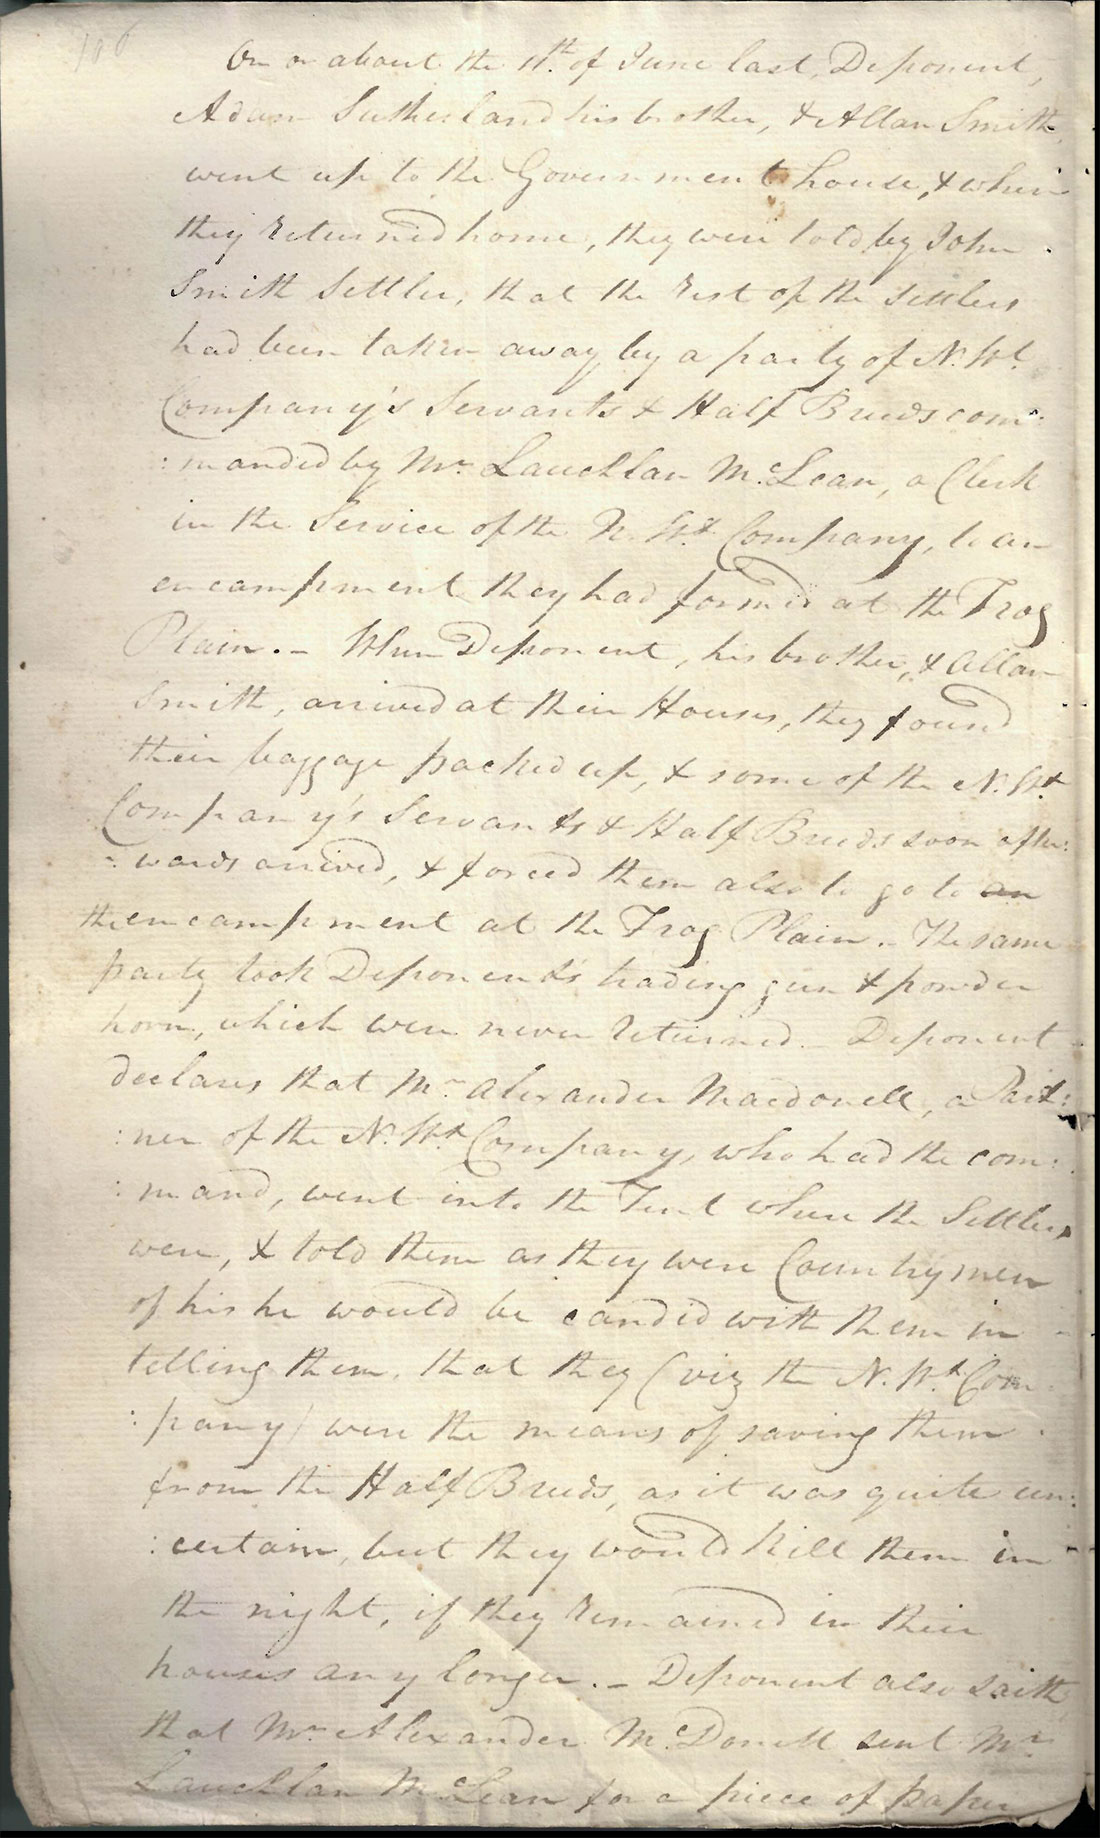 106
On or about the 11th of June last, Deponent,
Adam Sutherland his brother, & Allan Smith
went up to the Government house, & when
they returned home, they were told by John
Smith Settler, that the rest of the Settlers
had been taken away by a party of N. Wt
Company's Servants & Half Breeds com:
:manded by Mr Lauchlan McLean, a Clerk
in the Service of the N. Wt Company, to an
encampment they had formed at the Frog
Plain. – When Deponent, his brother, & Allan
Smith, arrived at their Houses, they found
their baggage packed up, & some of the N. Wt
Company's Servants & Half Breeds soon after:
:wards arrived, & forced them also to go to an
the encampment at the Frog Plain. – The same
party took Deponent's trading gun & powder
horn, which were never returned – Deponent
declares that Mr Alexander Macdonell, a Part:
:ner of the N. Wt Company, who had the com:
:mand, went into the Tent where the Settlers
were, & told them as they were Countrymen
of his he would be candid with them in
telling them, that they (viz the N. Wt Com
:pany) were the means of saving them
from the Half Breeds, as it was quite un:
:certain, but they would kill them in
the night, if they remained in their
houses any longer. – Deponent also saith
that Mr Alexander McDonell sent Mr
Lauchlan McLean for a piece of paper